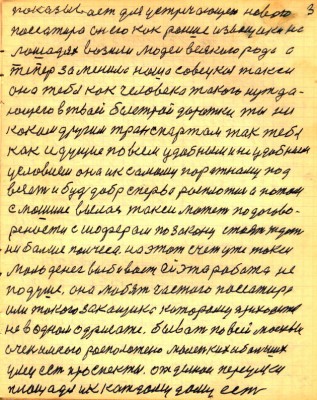 3
показывает для устричающем нового
пассажира снего как раньше извощики на
лошадях возили людей всякого рода а
тепер заменила наша совецкая такси
она тебя как человека такого нужда-
ющего в твоей быстрой доражки ты ни
каким другим транспартам так тебя
как идущие по всем удобным и не удобным
условиям она их самому паратному под
везёт и буд добр сперва расплотис а потом
с машине вылаз такси может подогово-
рености с шофёрам по закону стоять ждать
ни болие полчеса. на этот счет уже такси
мала денег выбивает ей эта работа не
подуше, она любят частого пассажира
или такого заказщика которому приходится
не в одном адрисате. бывать по всей москвы
очен много расположено малеких и больших
улиц ест проспекты. отделном переулки
площади и к каждому дому ест